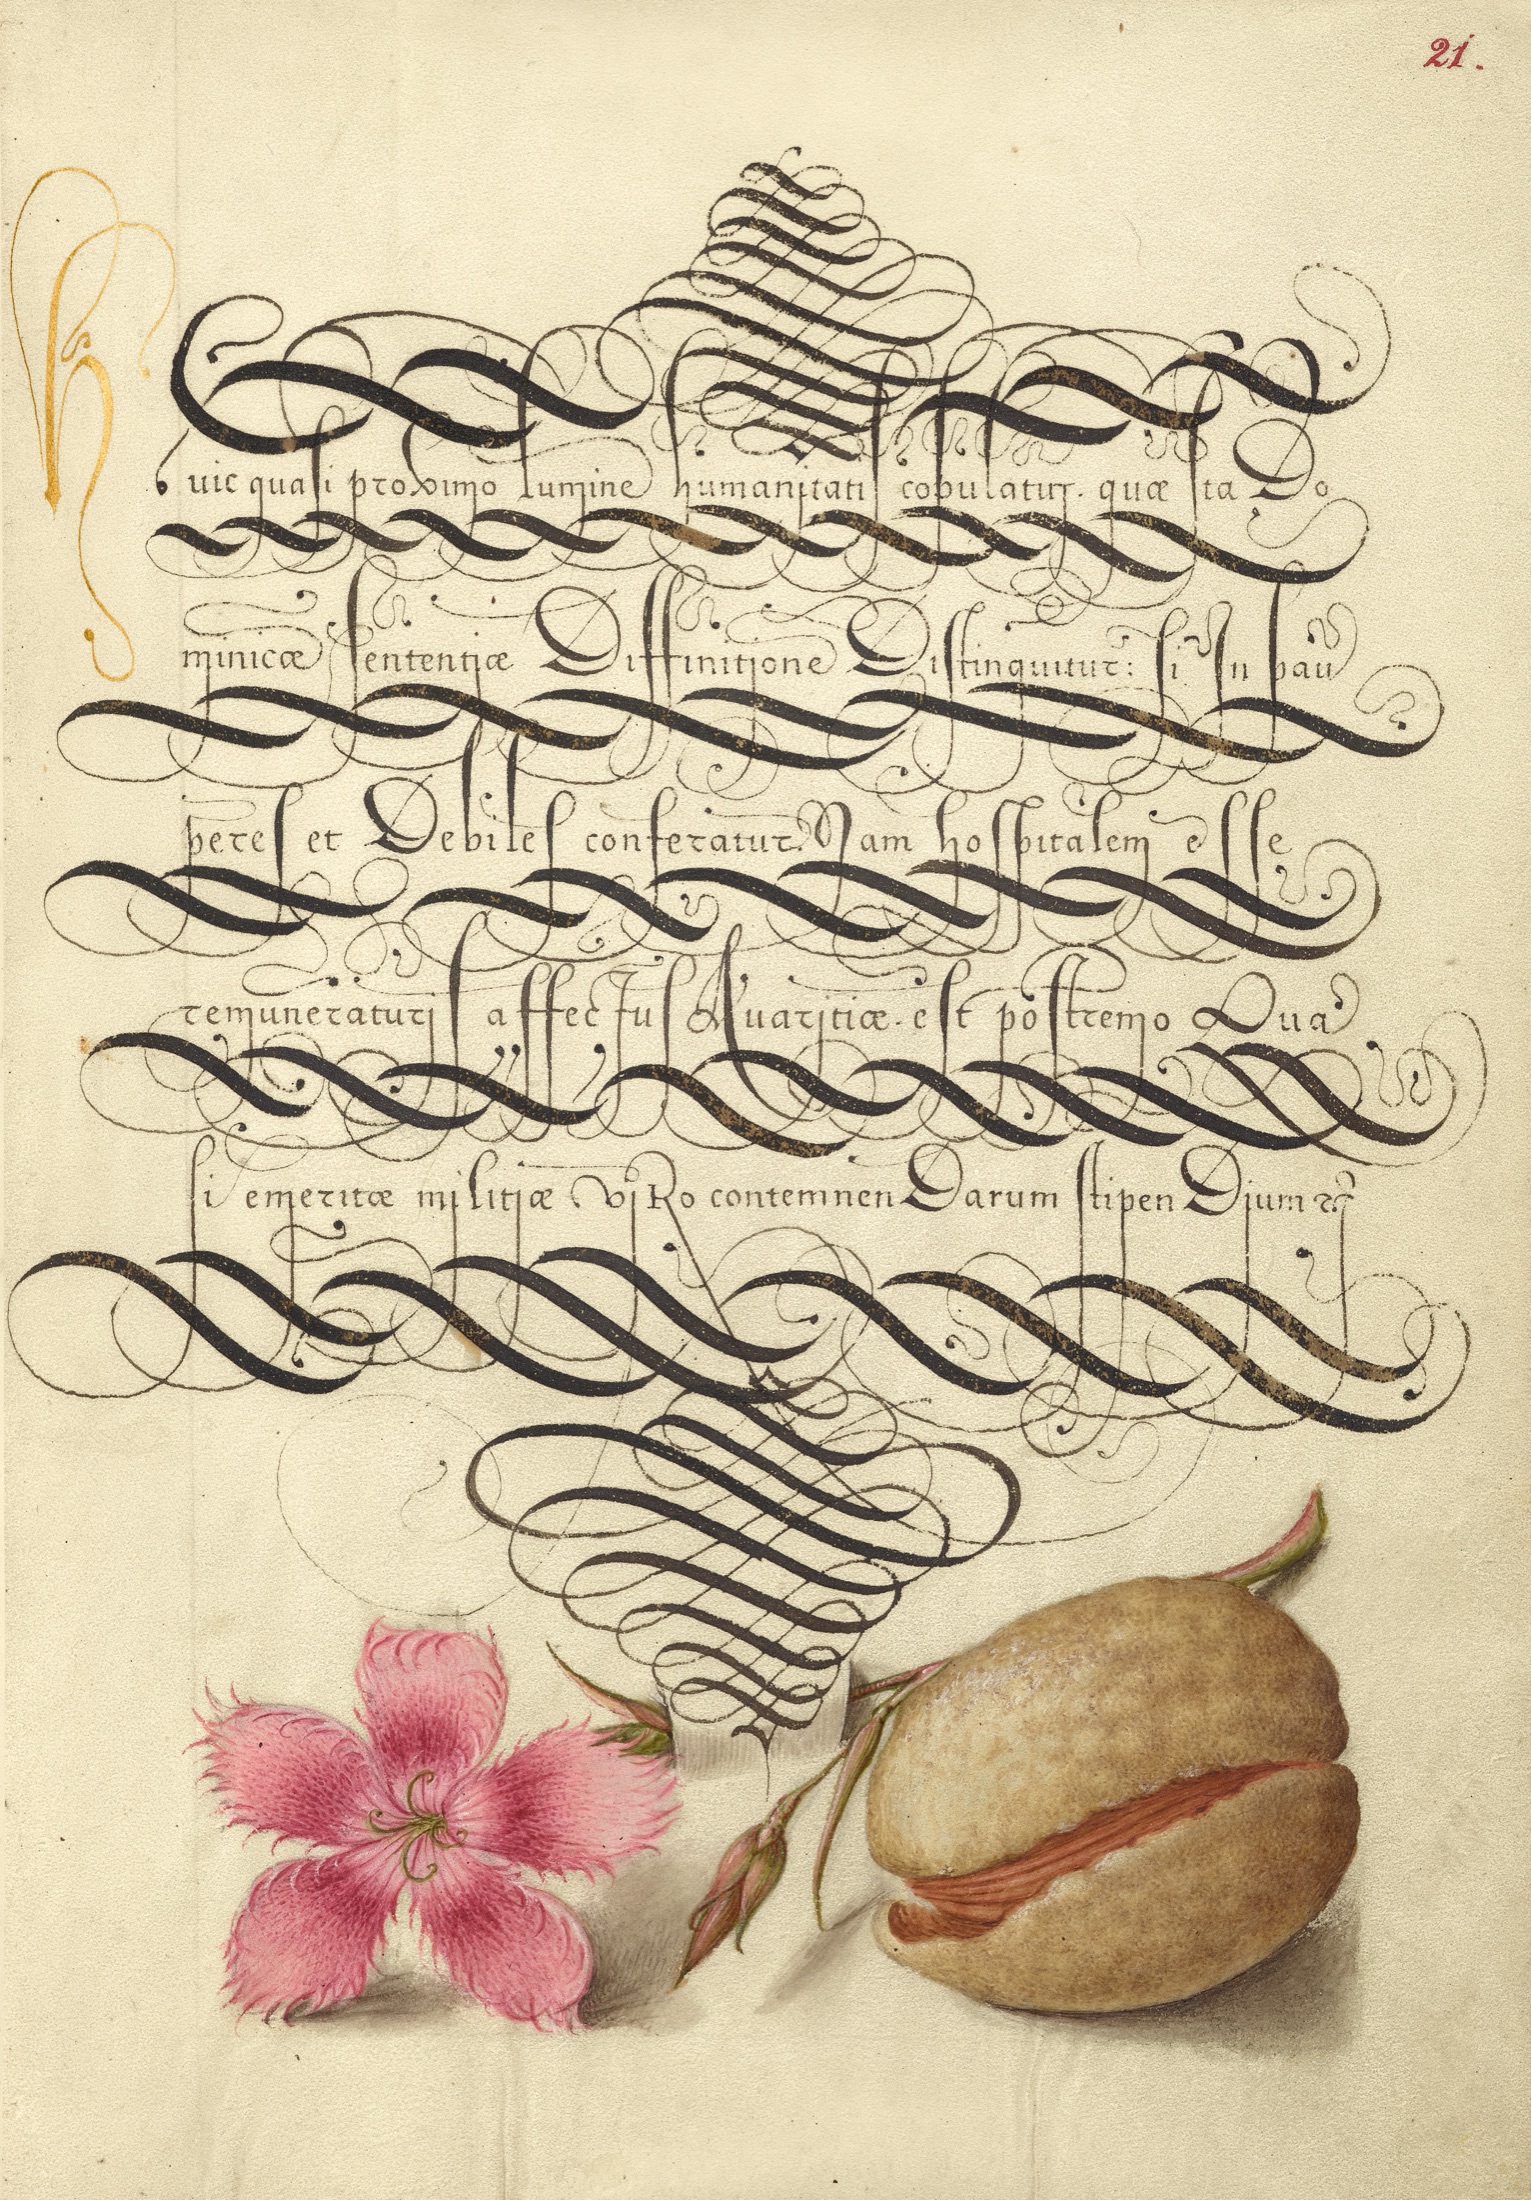 21.
Huic quasi proximo lumine humanitati copulatur. quæ ita Do
minicæ sententiæ Diffinitione Distinquitur: si In pau
peres et Debiles conferatur. Nam hospitalem esse
remuneraturis affectus Avaritiæ. est postremo Qua
si emeritæ militiæ viRo contemnenDarum stipenDium